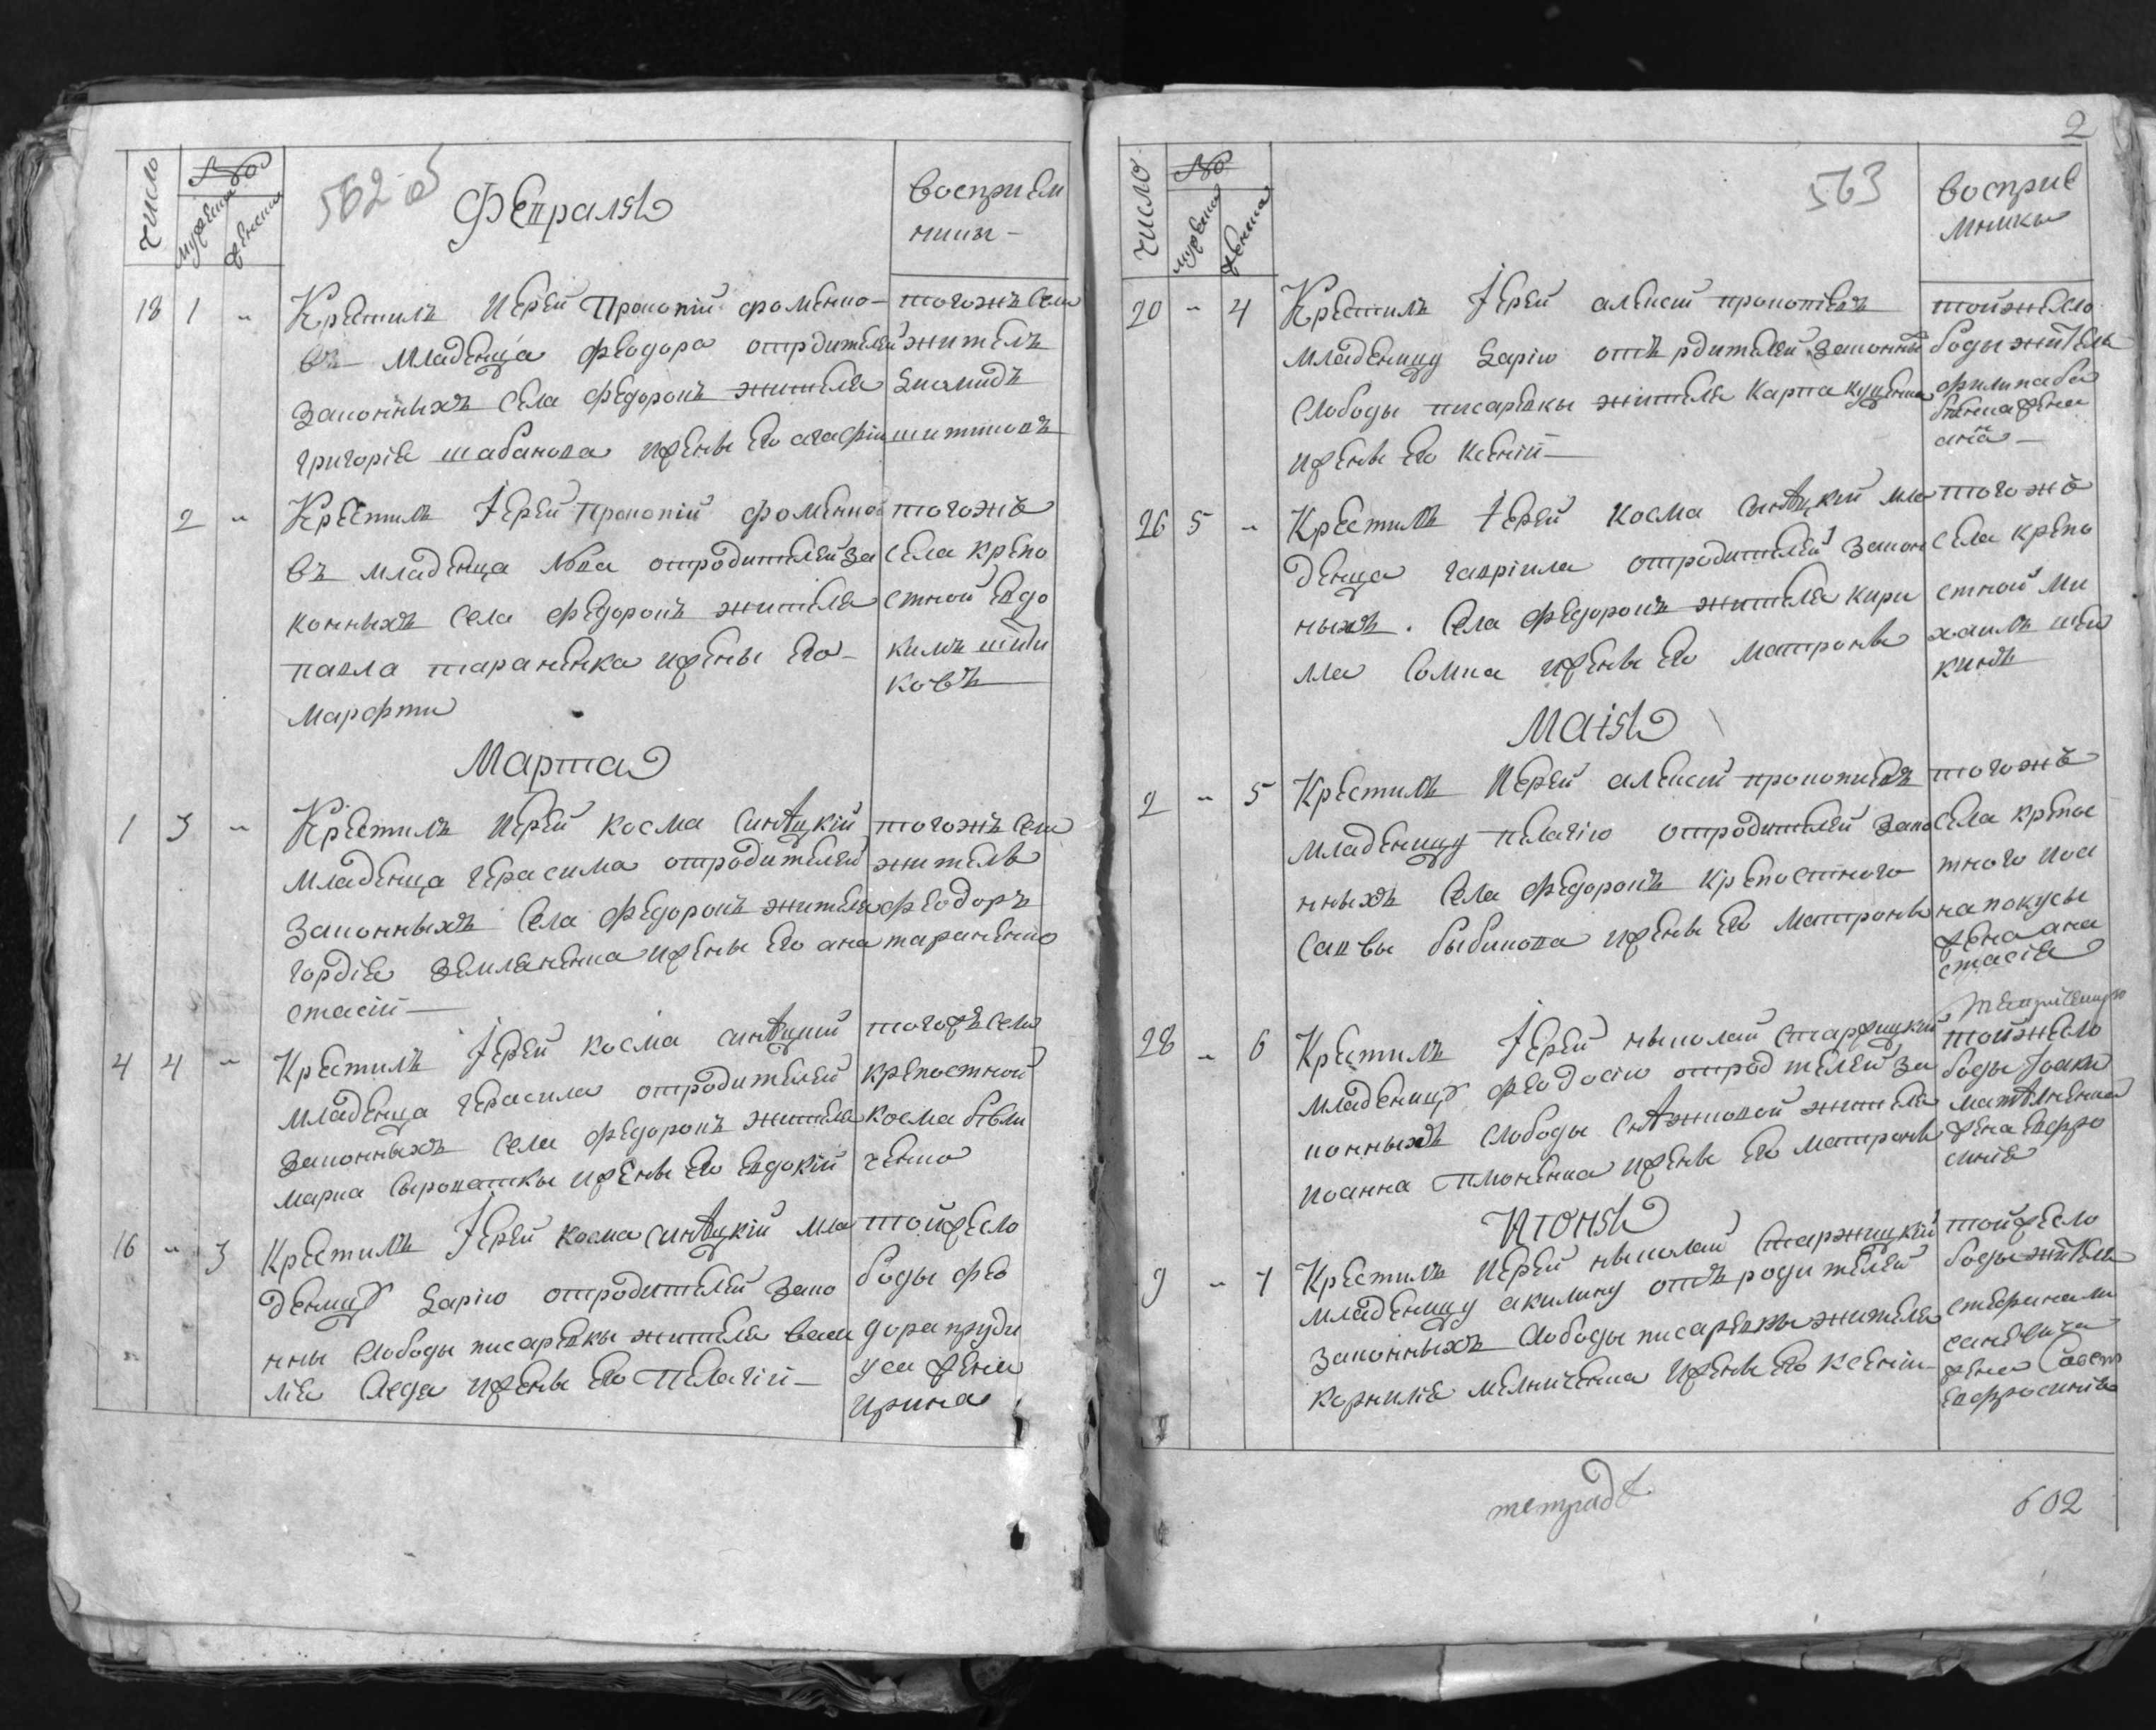 число
№
мужеска
женска
562
Февраля
восприем
ники
18 1 „ Крестилъ Иерей Прокопій фоменко
въ младенца феодора отрдителей
законныхъ села федоровъ жителя
григорія шабанова ижены его агафіи
тогожъ села
житель
шитиковъ
2 „ Крестилъ Іерей Прокопій фоменко
въ младенца отродителей за
конныхъ села федоровъ жителя
павла тараненка ижены его
марфти
тогоже
села крепо
стной евдо
кимъ шити
ковъ
Марта
1 3 „ Крестилъ Иерей косма синѣцкій
младенца герасима отродителей
законныхъ села федоровъ жителя
гордія землененка ижены его ана
стасіи
тогожъ села
житель
феодоръ
тараненко
4 4 „ Крестилъ Іерей косма синѣцкій
младенца герасима отродителей
законныхъ села федоровъ жителя
марка сыроватки ижены его евдокіи
тогожъ села
крепостной
косма
ченко
16 „ 3 Крестилъ Іерей косма синѣцкій мла
деницу дарію отродителей зако
нны слободы писаревки жителя васи
лія ижены его Пелагіи
тойжесло
боды фео
дора пруди
уса жена
ирина
2
число
№
мужеска
женска
563
восприе
мники
20 „ 4 Крестилъ Іерей алексій прокопіевъ
младеницу дарію отъ рдителей законны
слободы писаревки жителя карпа куценка
ижены его ксеніи
тойжесло
боды жителя
филипа ба
жена
26 5 „ Крестилъ Іерей косма синѣцкій мла
денца гавріила отродителей закон
ныхъ. села федоровъ жителя кири
лла сомка ижены его матроны
тогоже
села крепо
стной ми
хаилъ
кинъ
Маія
2 „ 5 Крестилъ Иерей алексій прокопиевъ
младеницу пелагію отродителей зако
нныхъ села федоровъ крепостного
саввы бибикова ижены его матроны
тогоже
села крепос
тного иоа
на покусы
жена ана
стасія
28 „ 6 Крестилъ Іерей николай старжицкій
младеницу феодосію отрод телей за
конныхъ слободы снѣжковой жителя
иоанна ижены его матроны
тойжесло
боды Іоаки
жена евфро
синія
Июня
9 „ 7 Крестилъ Иерей николай старжицкій
младеницу акилину отъ родителей
законныхъ слободы писаревки жителя
корнилія мелниченка ижены его ксеніи
тойжесло
боды жителя
стефана ли
жена
евфросинія
тетрадь
602